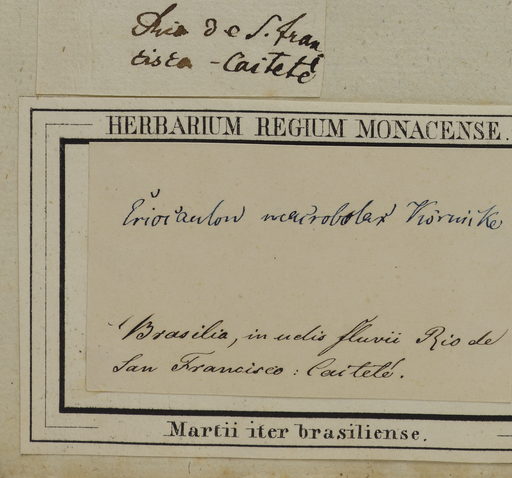 Rio de S. fran
cisco - Caiteté
HERBARIUM REGIUM MONACENSE.
Eriocaulon macrobolax Körnicke
Brasilia, in udis fluvii Rio de
San Francisco: Caiteté.
Martii iter brasiliense.